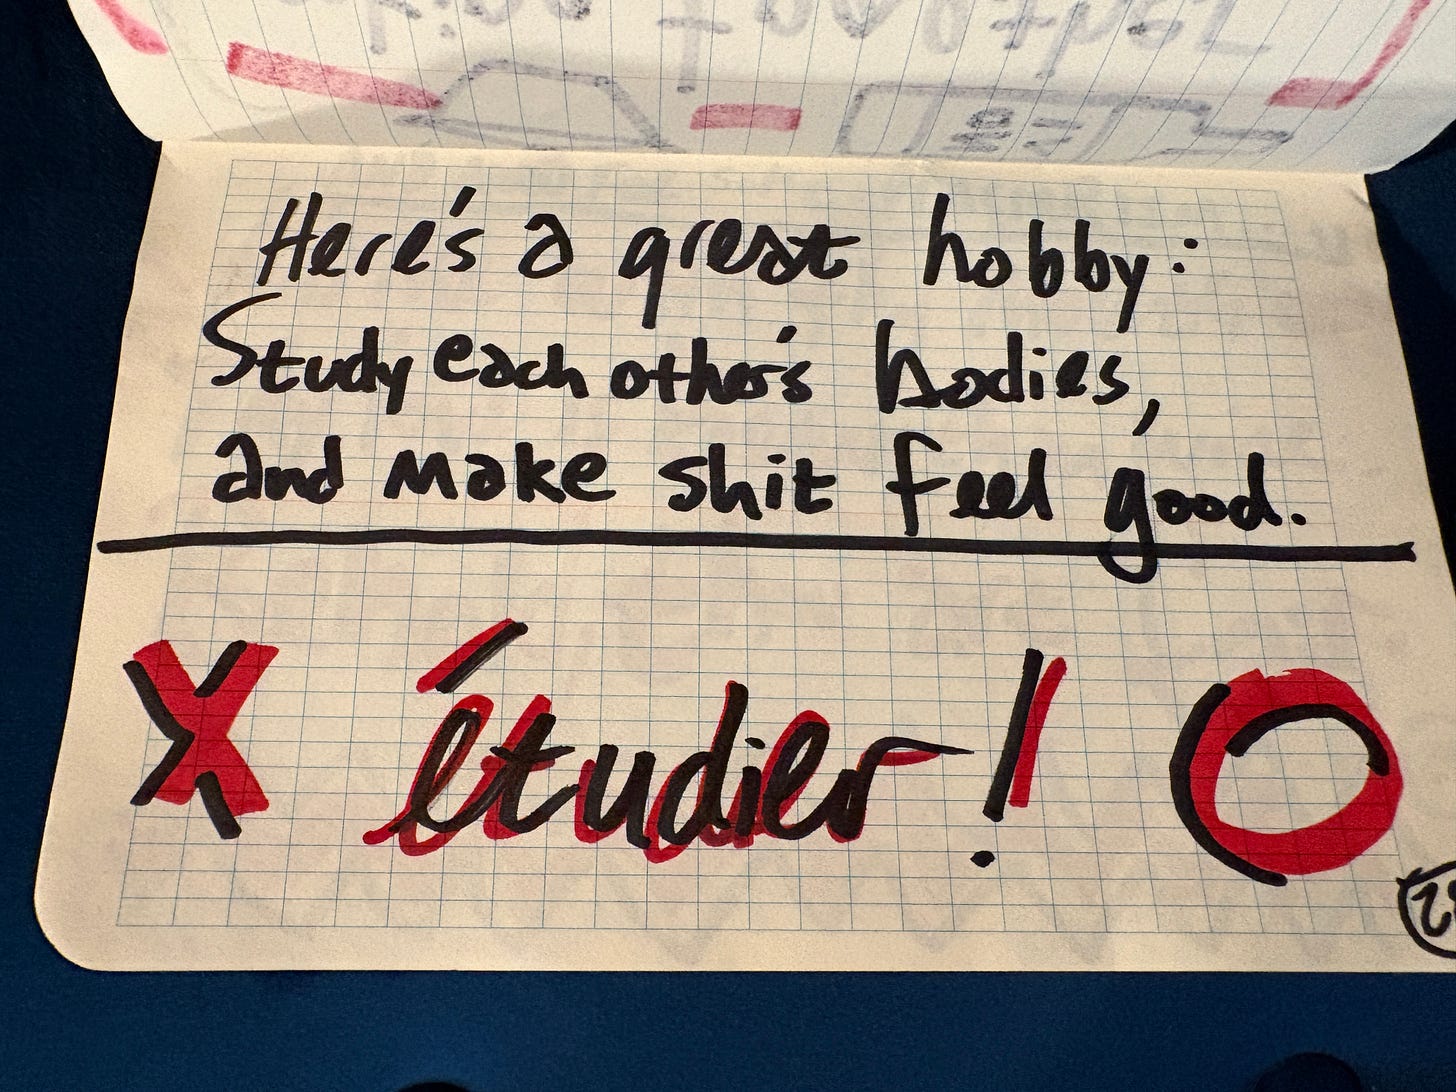 Here's a great hobby:
Study each other's bodies,
and make shit feel good.
X étudier! O